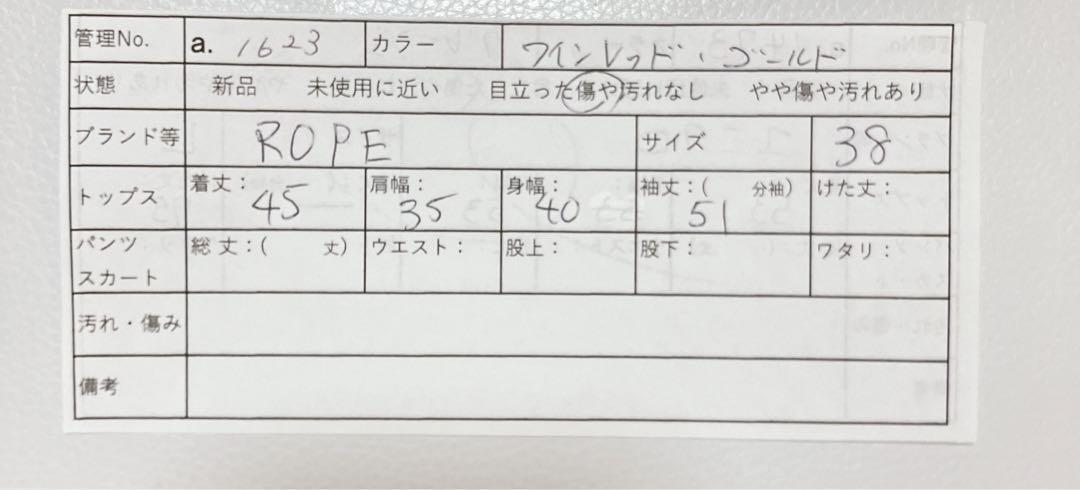 管理No. a. 1623 カラー ワインレッド・ゴールド
状態 新品 未使用に近い 目立った傷や汚れなし やや傷や汚れあり
ブランド等 ROPE サイズ 38
トップス 着丈：45 肩幅：35 身幅：40 袖丈：( 分袖) 51 けた丈：
パンツ スカート 総丈：( 丈) ウエスト： 股上： 股下： ワタリ：
汚れ・傷み
備考